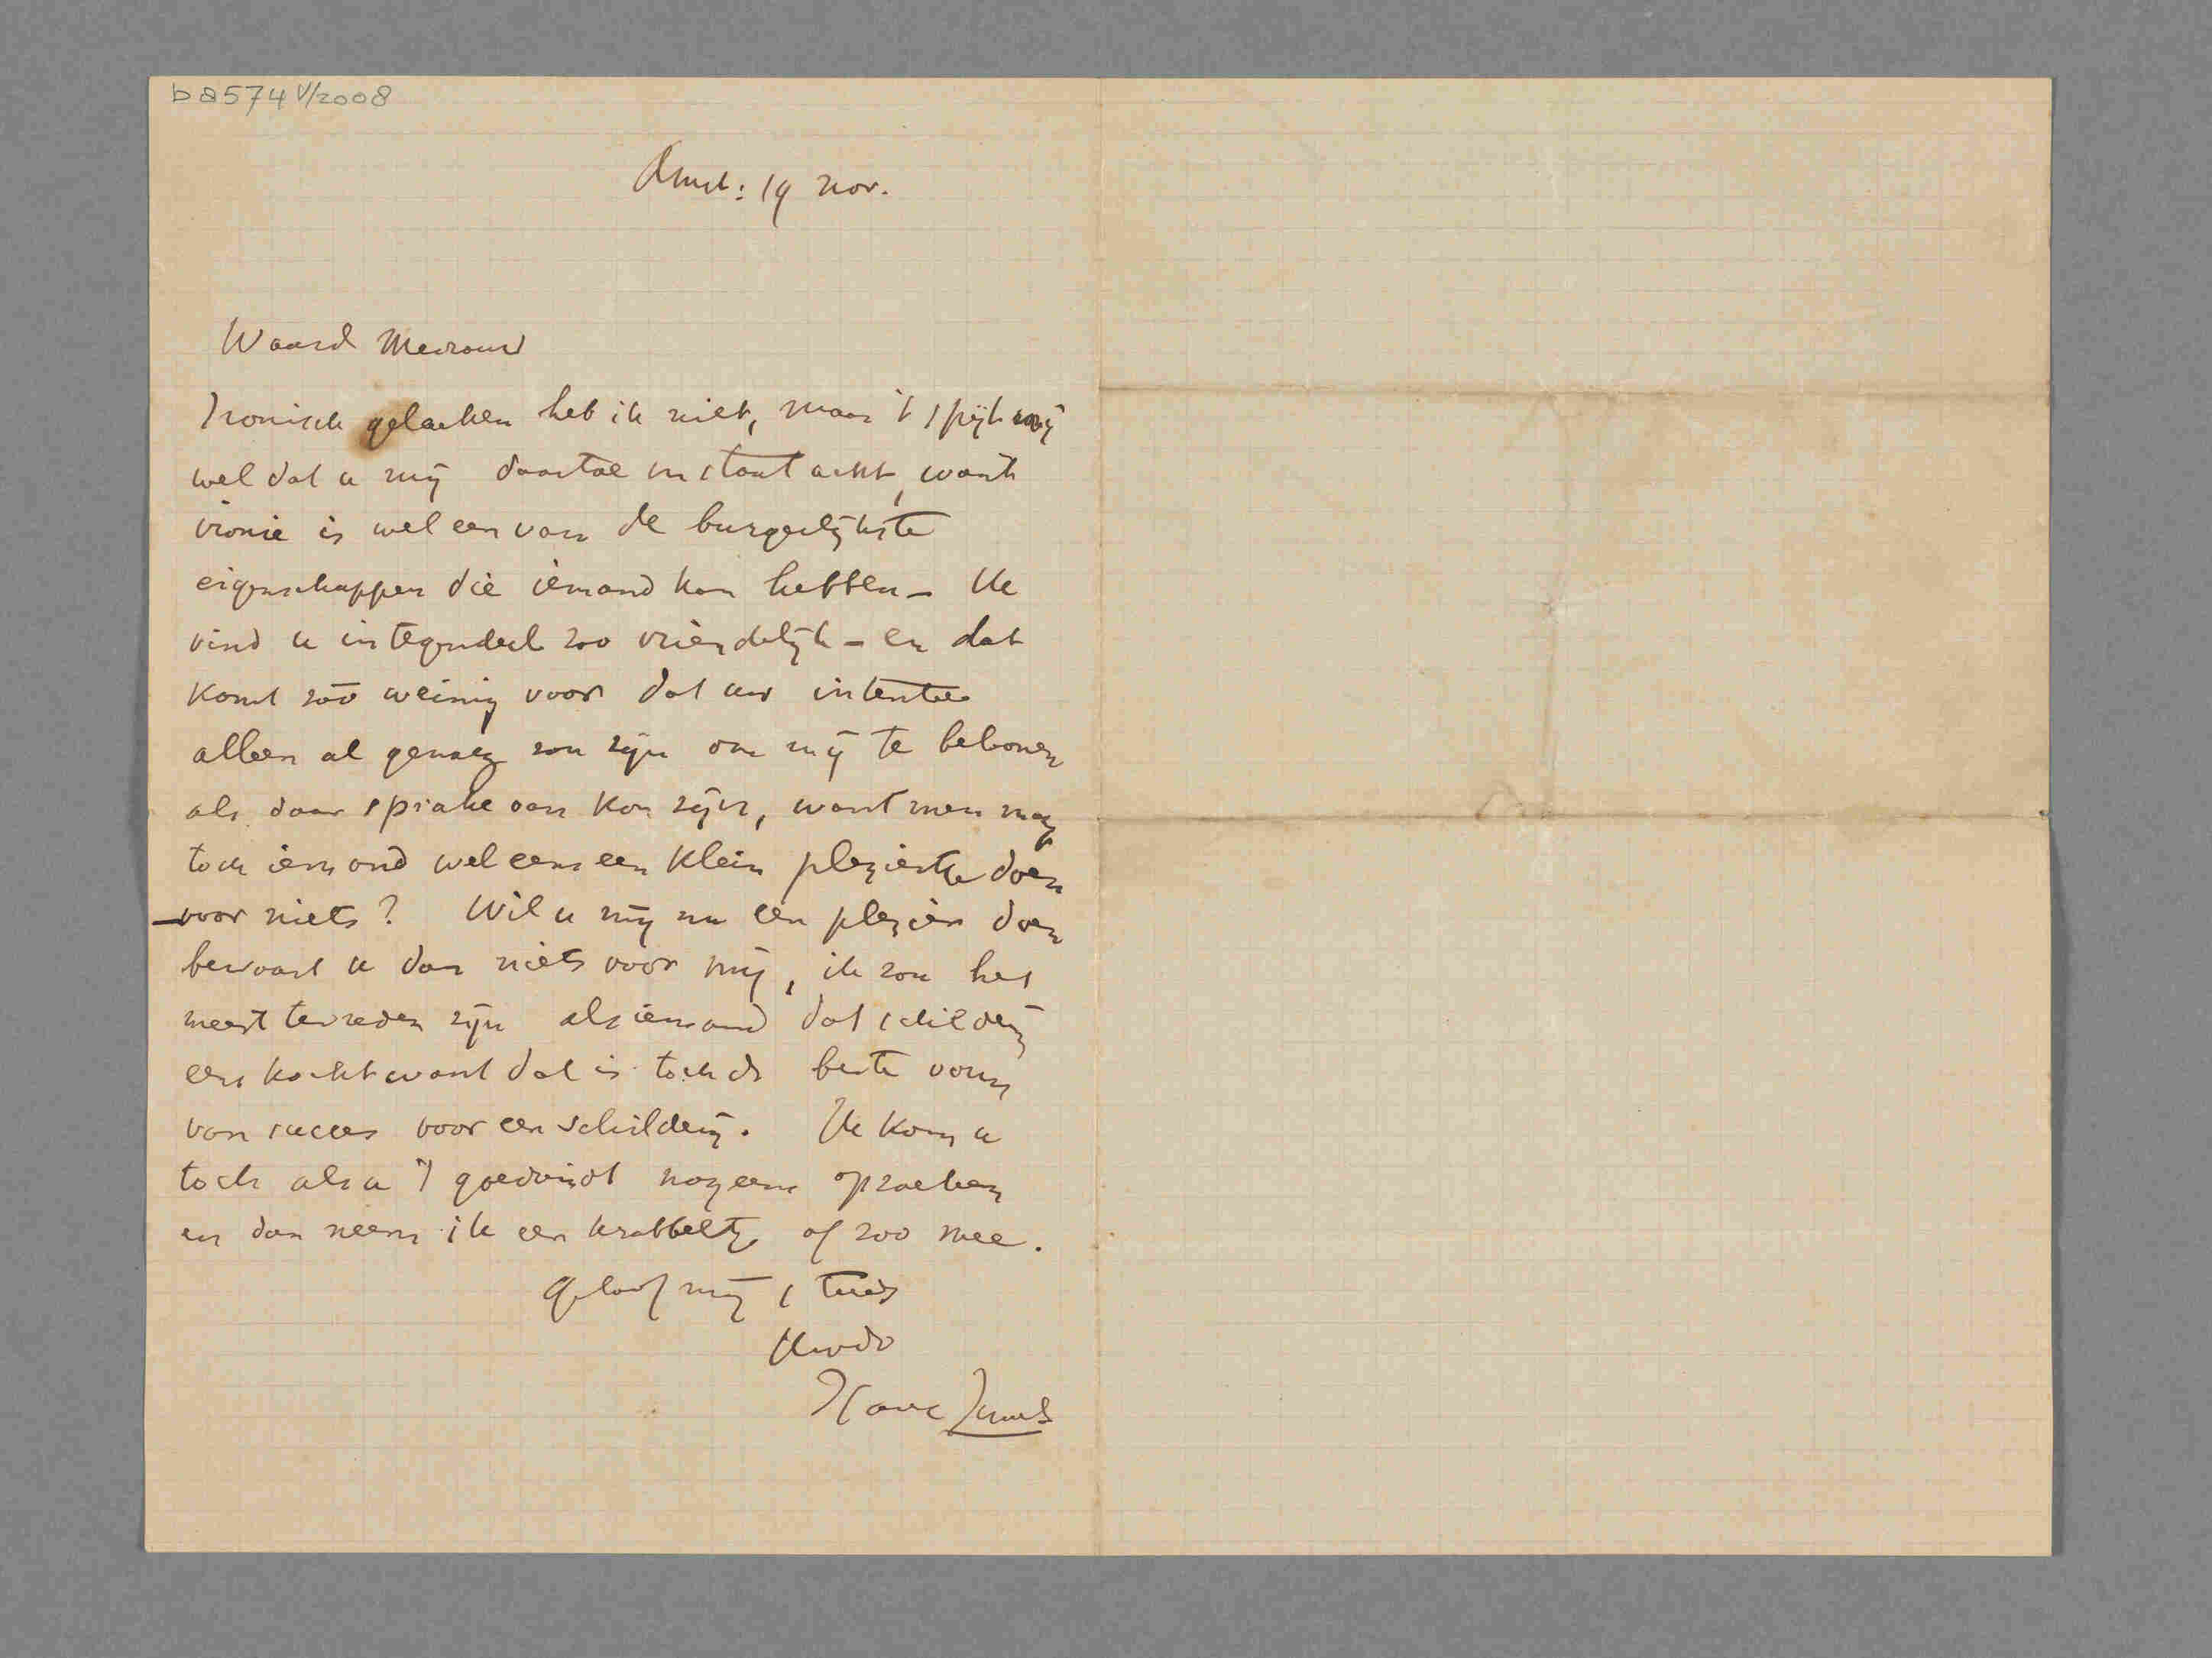 b8574 V/2008
Amst: 19 nov.
Waard Mevrouw
Ironisch gelachen heb ik niet, maar 't spijt mij
wel dat u mij daartoe in staat acht, want
ironie is wel een van de burgerlijkste
eigenschappen die iemand kan hebben – Ik
vind u integendeel zoo vriendelijk – en dat
komt zóó weinig voor dat uw intentie
alleen al genoeg zou zijn om mij te beloonen
als daar sprake van kon zijn, want men mag
toch iemand wel eens een klein pleziertje doen
voor niets? Wil u mij nu een plezier doen
bewaart u dan niets voor mij, ik zou het
meest tevreden zijn als iemand dat schilderij
eens kocht want dat is toch de beste vorm
van succes voor een schilderij. Ik kom u
toch als u 't goedvindt nog eens opzoeken
en dan neem ik een krabbeltje of zoo mee.
Geloof mij steeds
Uwdv
Isaac Israels